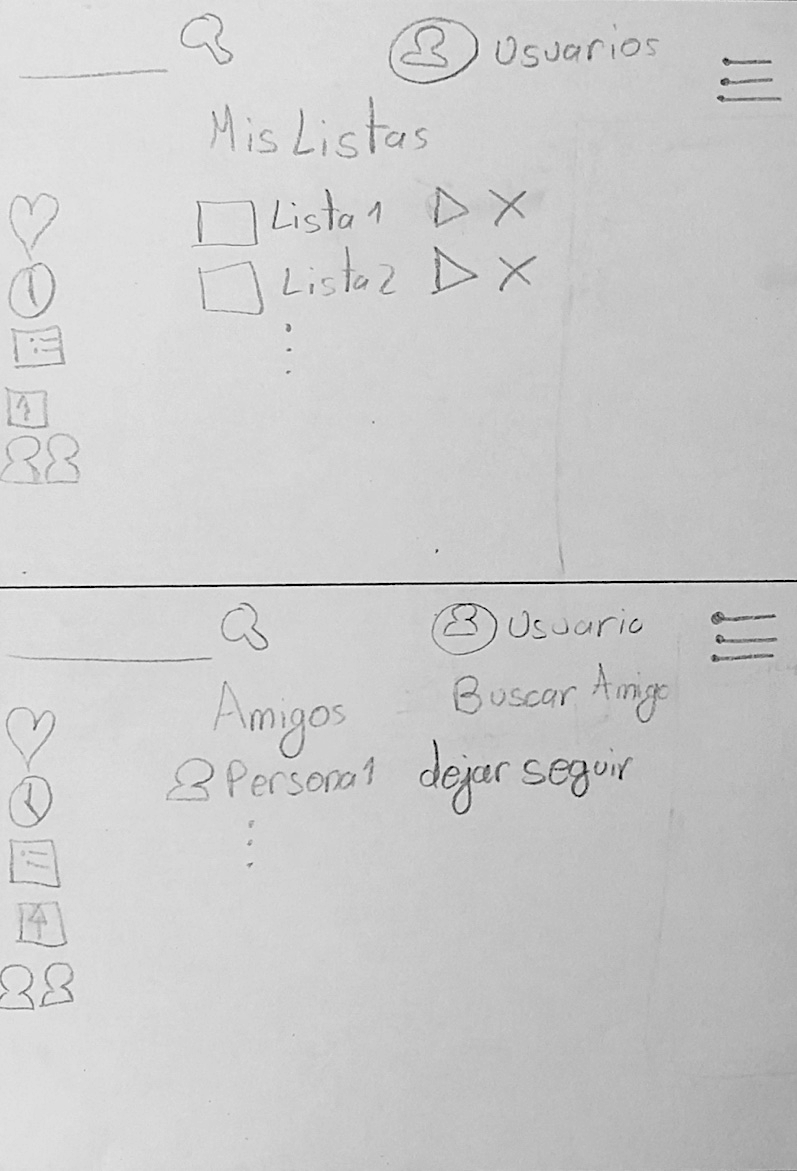 Usuarios
Mis Listas
Lista 1
Lista 2
Usuario
Amigos Buscar Amigo
Persona 1 dejar seguir